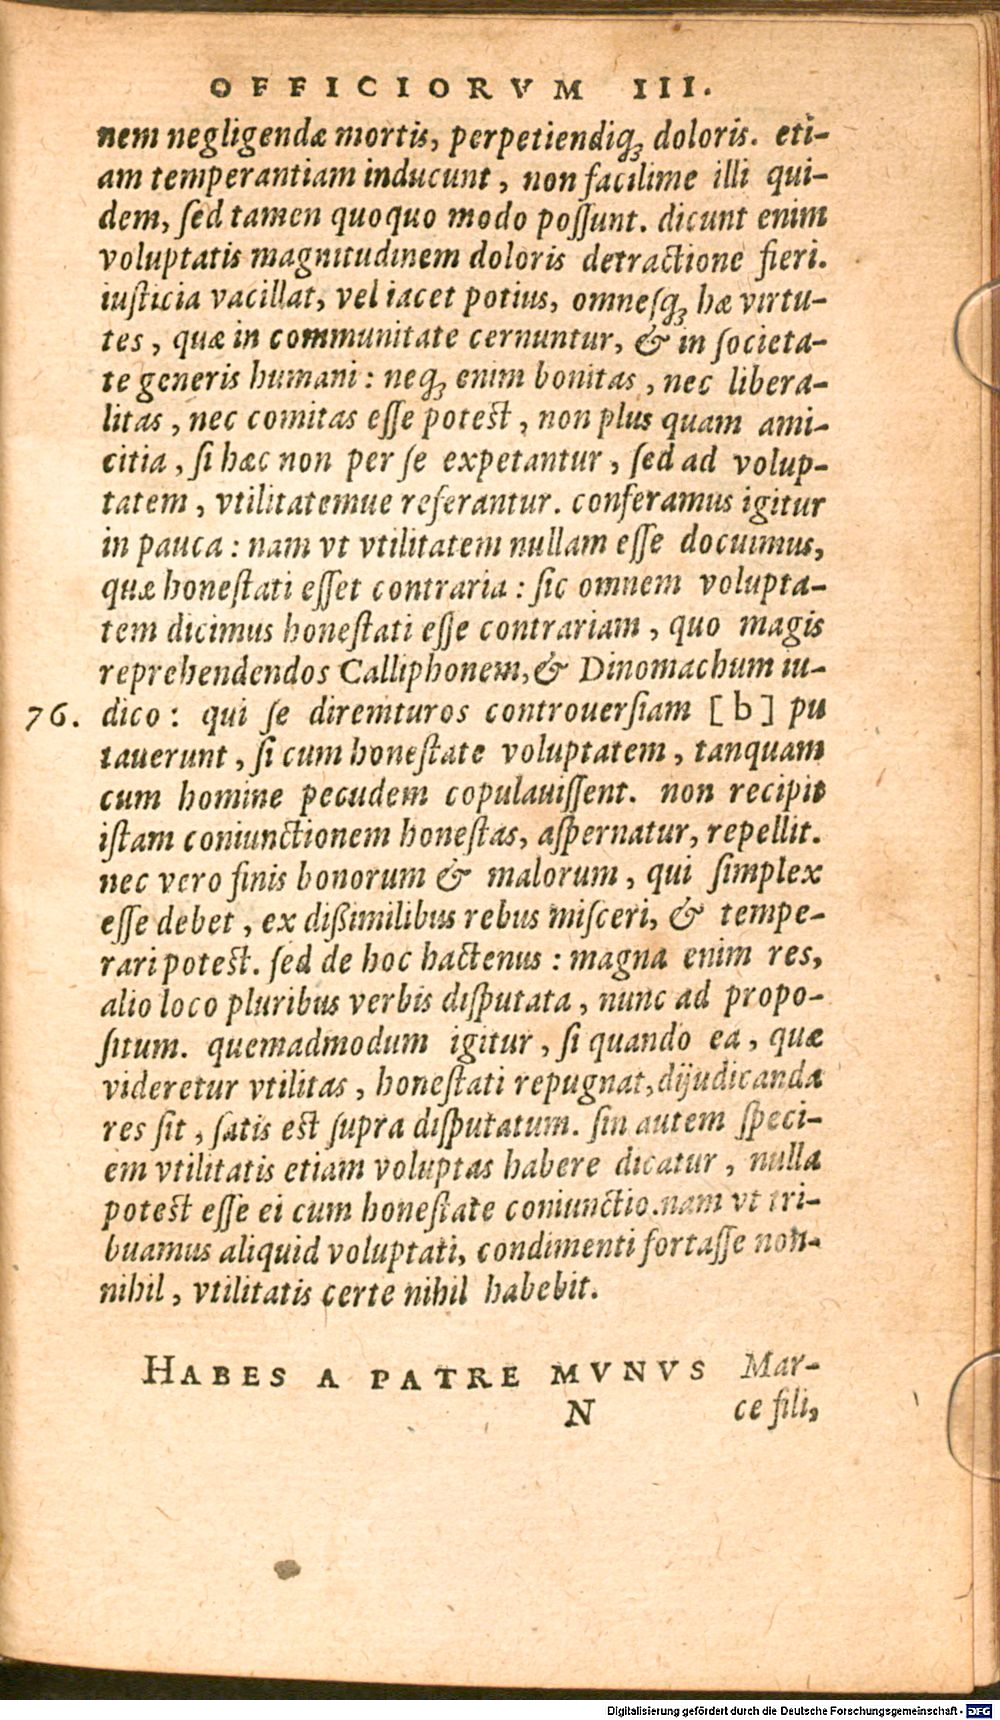 OFFICIORVM III.
nem negligendæ mortis, perpetiendiq́; doloris. eti-
am temperantiam inducunt, non facilime illi qui-
dem, ſed tamen quoquo modo poſſunt. dicunt enim
voluptatis magnitudinem doloris detractione fieri.
iuſticia vacillat, vel iacet potius, omneſq́; hæ virtu-
tes, quæ in communitate cernuntur, & in ſocieta-
te generis humani: neq́; enim bonitas, nec libera-
litas, nec comitas eſſe potest, non plus quam ami-
citia, ſi hæc non per ſe expetantur, ſed ad volup-
tatem, vtilitatemue referantur. conferamus igitur
in pauca: nam vt vtilitatem nullam eſſe docuimus,
quæ honeſtati eſſet contraria: ſic omnem volupta-
tem dicimus honeſtati eſſe contrariam, quo magis
reprehendendos Calliphonem, & Dinomachum iu-
76. dico: qui ſe diremturos controuerſiam [b] pu
tauerunt, ſi cum honeſtate voluptatem, tanquam
cum homine pecudem copulauiſſent. non recipit
iſtam coniunctionem honeſtas, aſpernatur, repellit.
nec vero finis bonorum & malorum, qui ſimplex
eſſe debet, ex dißimilibus rebus miſceri, & tempe-
rari potest. ſed de hoc hactenus: magna enim res,
alio loco pluribus verbis diſputata, nunc ad propo-
ſitum. quemadmodum igitur, ſi quando ea, quæ
videretur vtilitas, honeſtati repugnat, dijudicanda
res ſit, ſatis est ſupra diſputatum. ſin autem ſpeci-
em vtilitatis etiam voluptas habere dicatur, nulla
potest eſſe ei cum honeſtate coniunctio. nam vt tri-
buamus aliquid voluptati, condimenti fortaſſe non-
nihil, vtilitatis certe nihil habebit.
HABES A PATRE MVNVS Mar-
N ce fili,
Digitalisierung gefördert durch die Deutsche Forschungsgemeinschaft - DFG